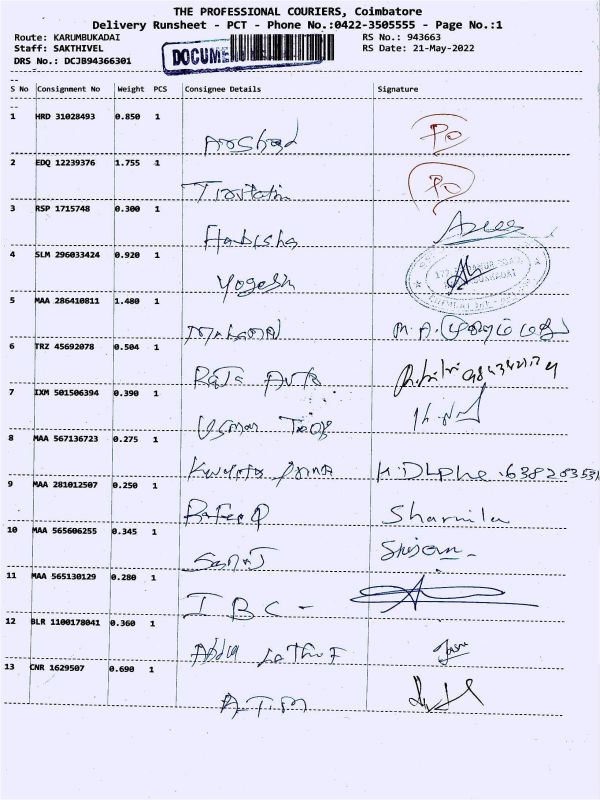 THE PROFESSIONAL COURIERS, Coimbatore
Delivery Runsheet - PCT - Phone No.:0422-3505555 - Page No.:1
Route: KARUMBUKADAI RS No.: 943663
Staff: SAKTHIVEL RS Date: 21-May-2022
DRS No.: DCJB94366301
DOCUME
S No Consignment No Weight PCS Consignee Details Signature
1 HRD 31028493 0.850 1
Arshad PO
2 EDQ 12239376 1.755 1
PO
3 RSP 1715748 0.300 1
Habisha
4 SLM 296033424 0.920 1
Yogesh
5 MAA 286410811 1.480 1
M.A.
6 TRZ 45692078 0.504 1
Raja Auto
7 IXM 501506394 0.390 1
Usman
8 MAA 567136723 0.275 1
9 MAA 281012507 0.250 1
Rafeeq Sharmila
10 MAA 565606255 0.345 1
11 MAA 565130129 0.280 1
I B C -
12 BLR 1100178041 0.360 1
Abdul Lathif
13 CNR 1629507 0.690 1
A.T.M